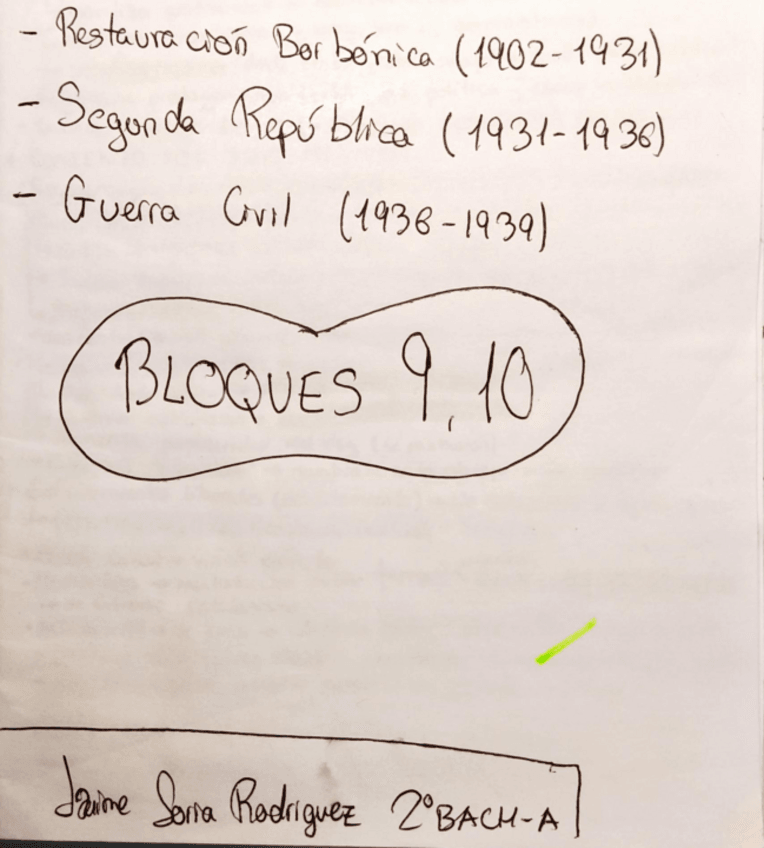 - Restauración Borbónica (1902-1931)
- Segunda República (1931-1936)
- Guerra Civil (1936-1939)
BLOQUES 9,10
Jaime Soria Rodriguez 2ºBACH-A